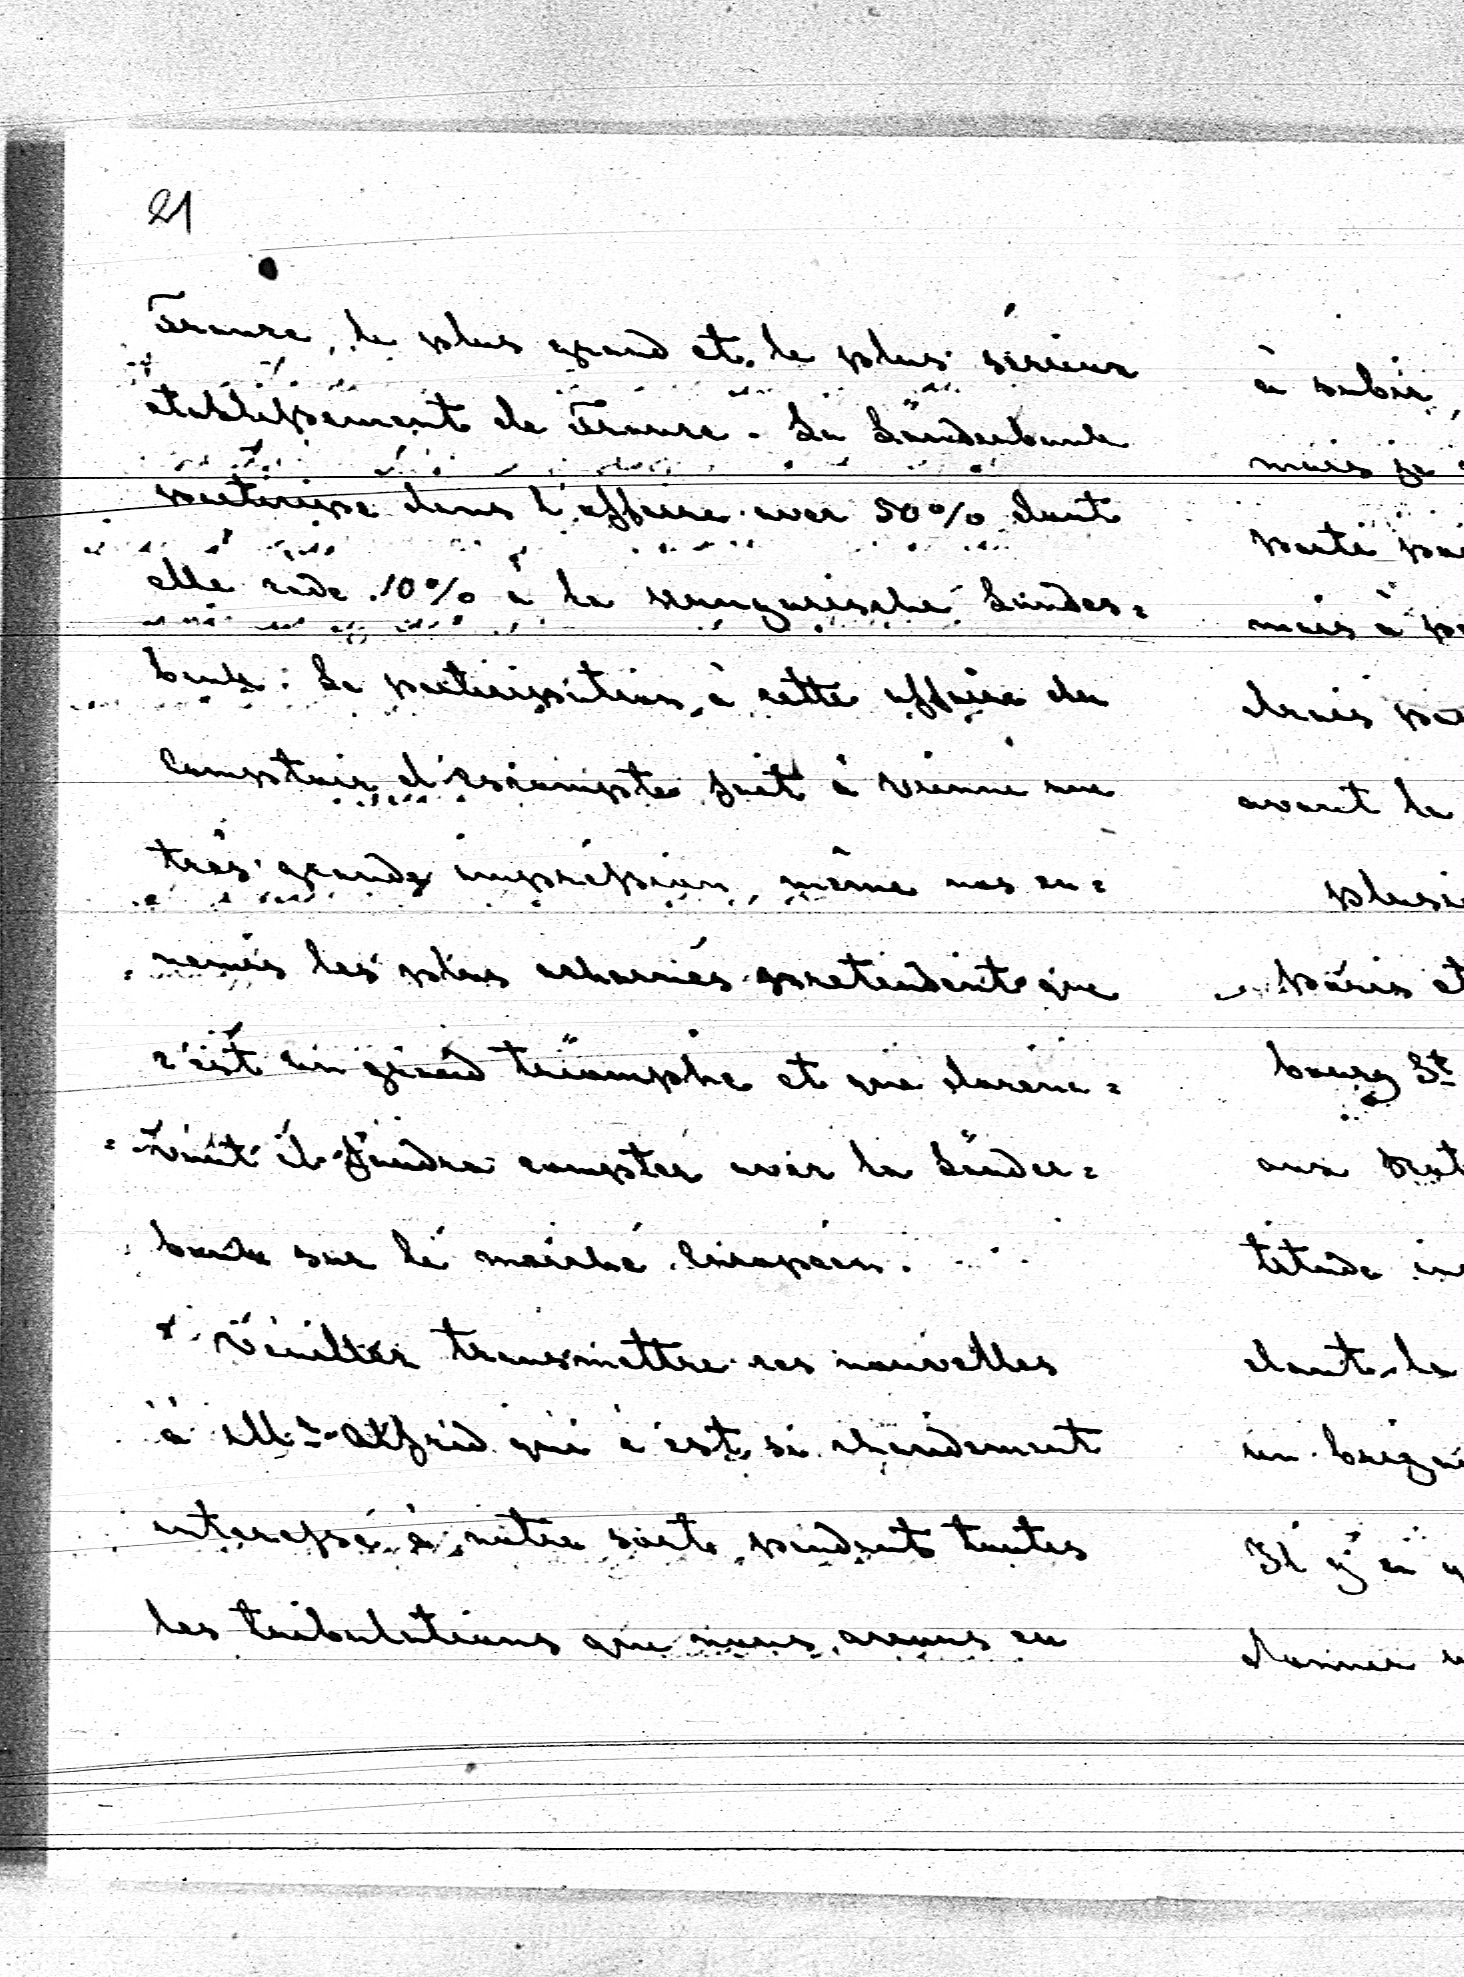 21
France, le plus grand et le plus sérieux
etablissement de France. La Länderbank
participe dans l'affaire avec 50% dont
elle cède 10% à la Hungarische Landes=
bank. La participation à cette affaire du
Comptoir d'Escompte fait à Vienne une
très grande impression, même nos en=
nemis les plus acharnés pretendent que
c'est un grand triomphe et que doréna=
=vant il faudra compter avec la Länder=
bank sur le marché Européen.
Veuillez transmettre ces nouvelles
à Mr. Alfred qui s'est si chaudement
interessé à notre sort pendant toutes
les tribulations que nous avons eu
à subir,
mais je
mais à
avant le
Paris et
bourg St
aux
dont la
un
Il y a
donner